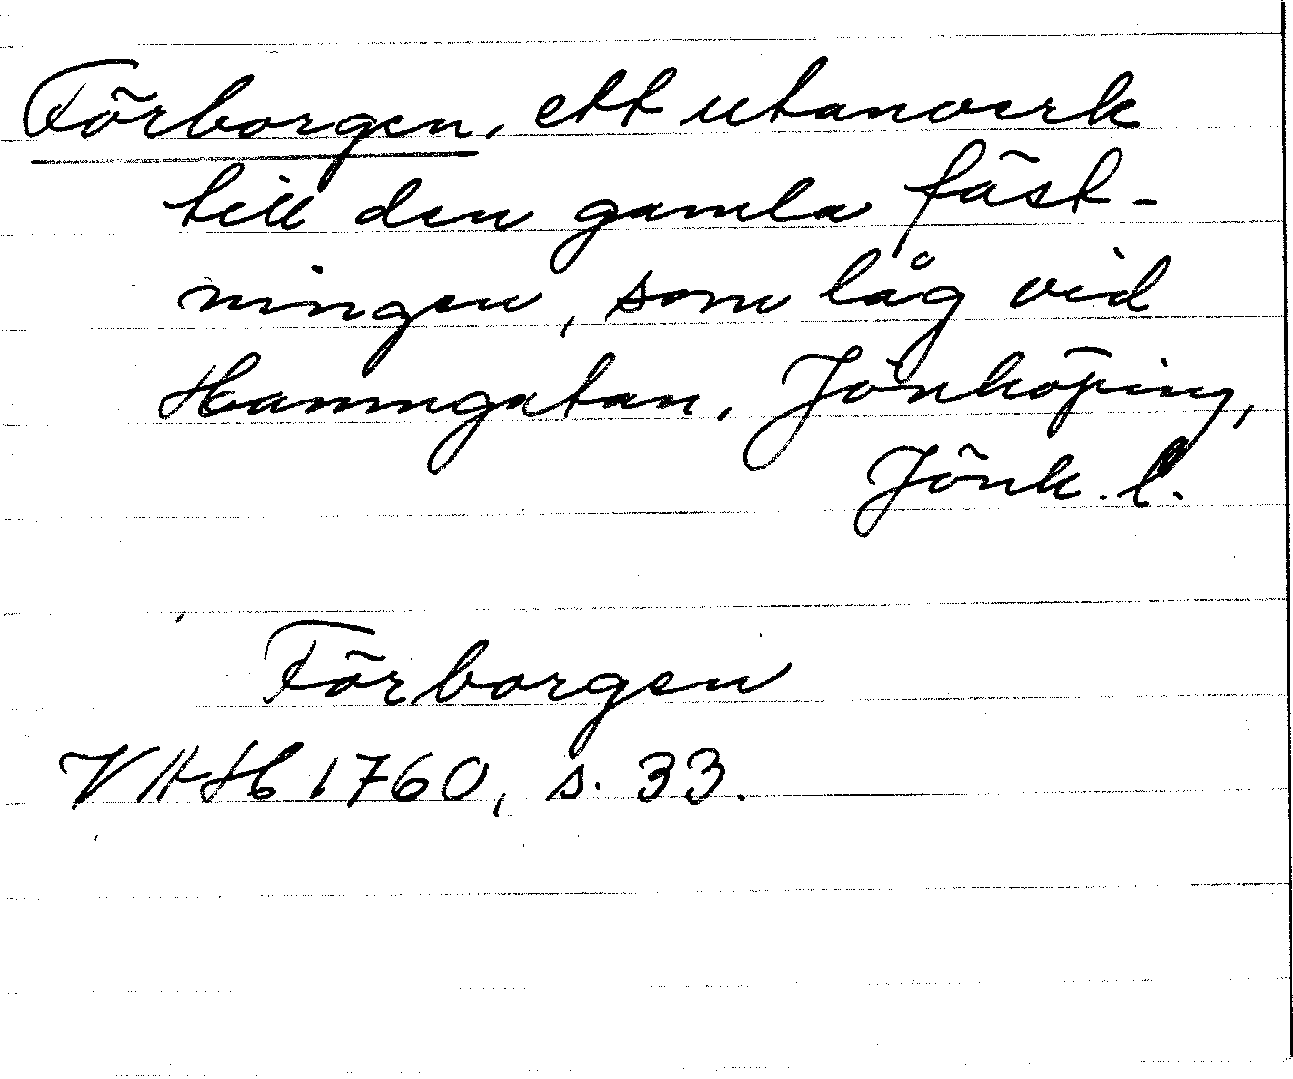 Förborgen, ett utanverk
till den gamla fäst-
ningen, som låg vid
Hamngatan, Jönköping,
Jönk. l.
Förborgen
VAH 1760, s. 33.